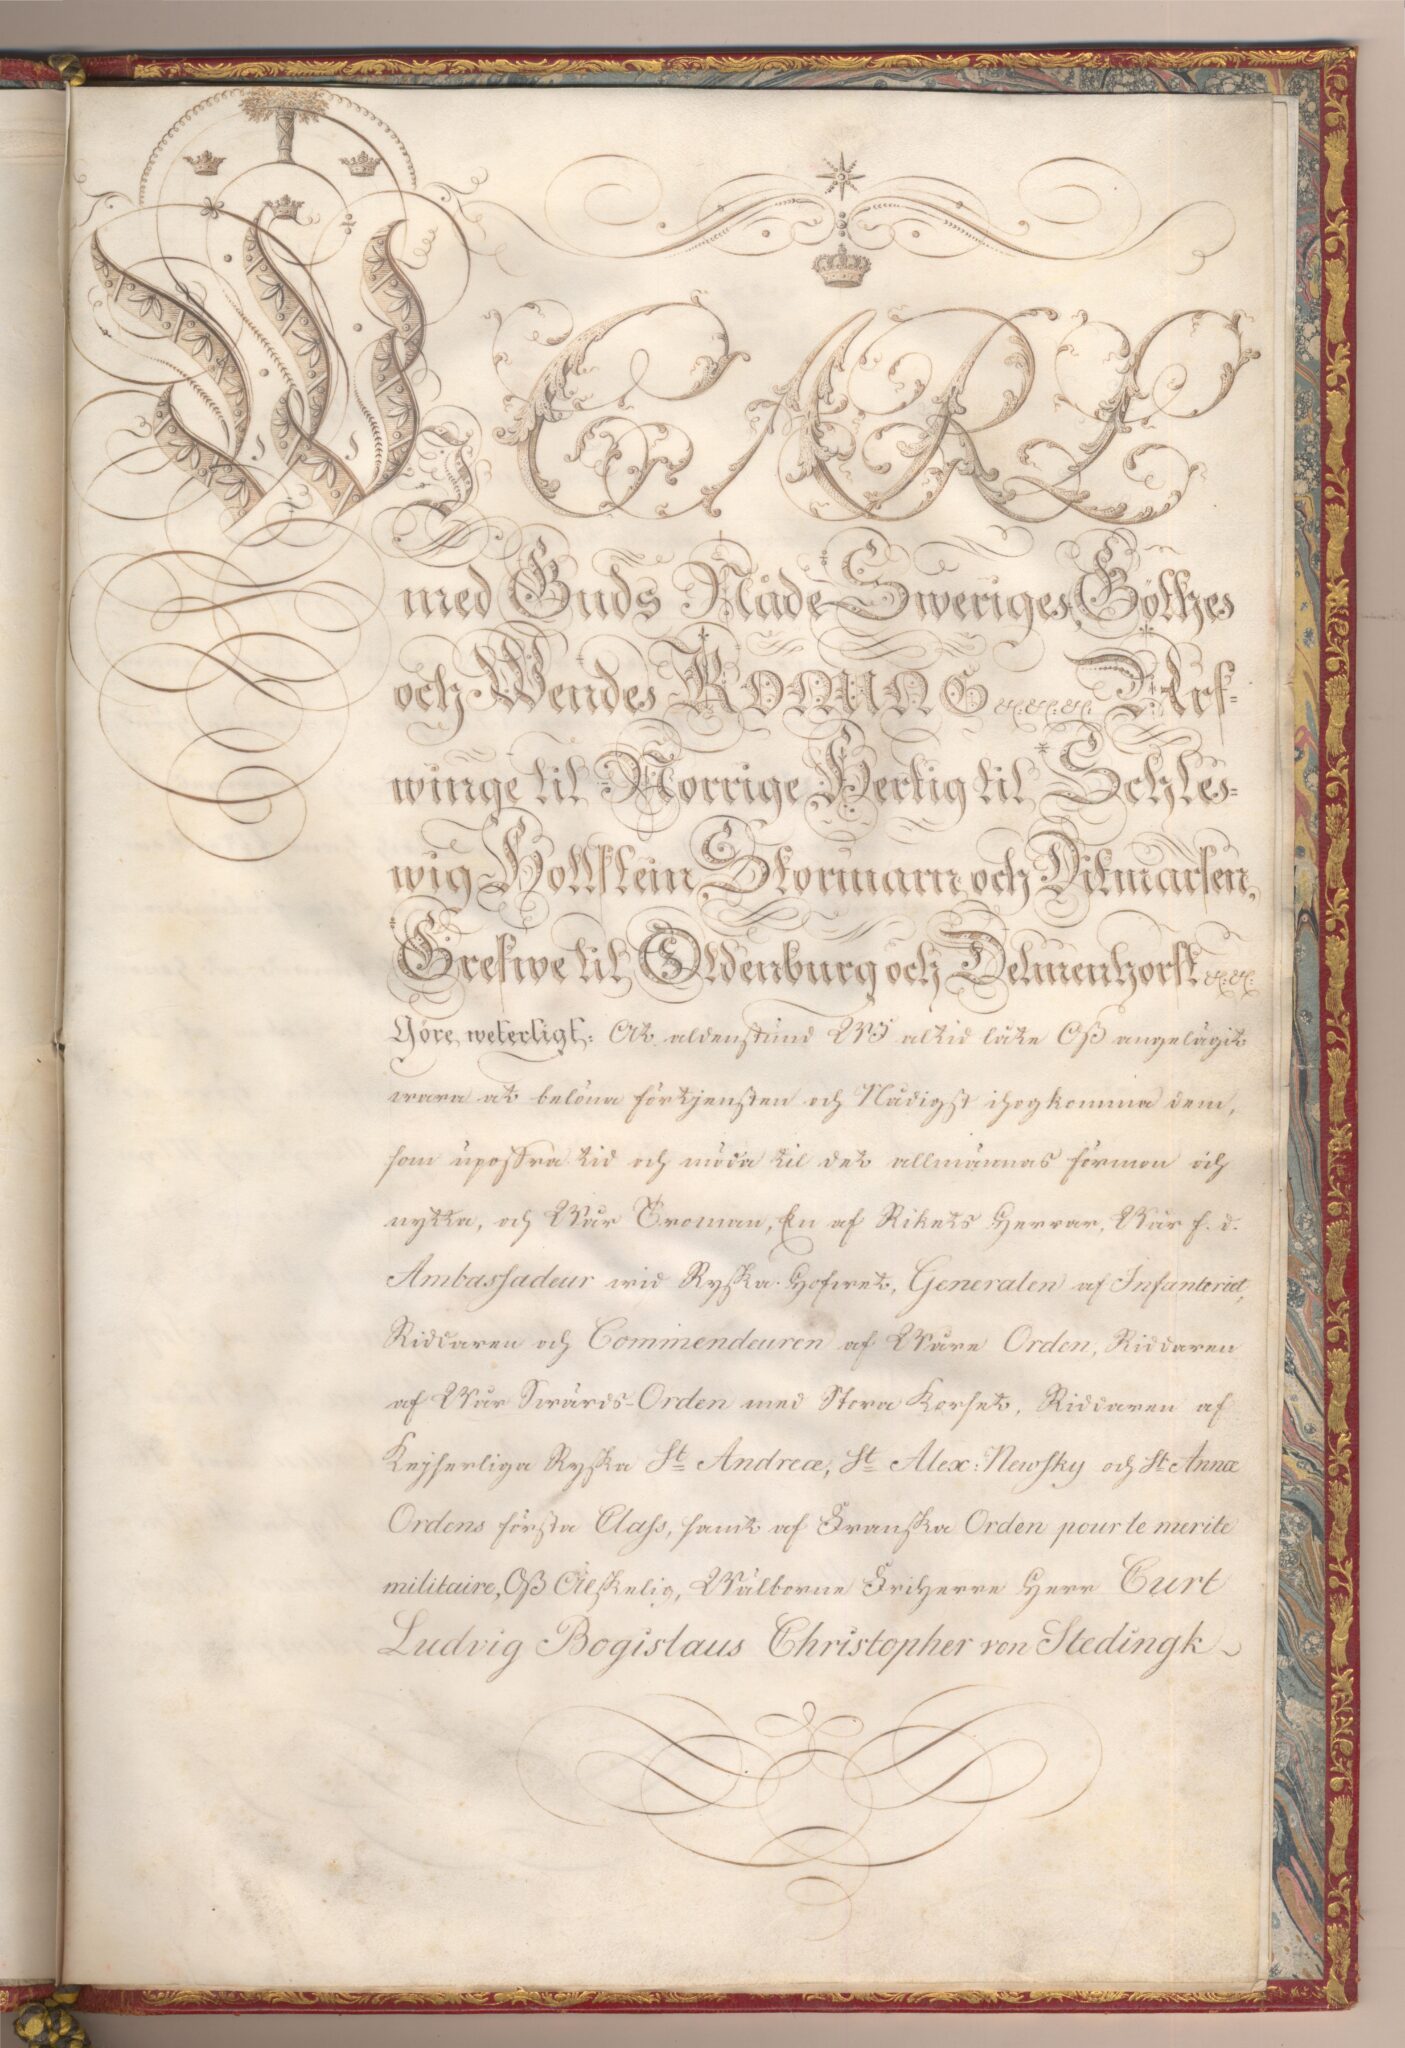 WJ CARL
med Guds Nåde Sweriges, Göthes
och Wendes KONUNG &c. &c. &c. Arf-
winge til Norrige Hertig til Schles-
wig Hollstein, Stormarn och Ditmarsen,
Grefwe til Oldenburg och Delmenhorst &c. &c.
Göre weterligt: At aldenstund WJ altid låte Oß angelägit
wara at belöna förtjensten och Nådigst ihogkomma dem,
som upoffra tid och möda til det allmännas förmon och
nytta, och Wår Troman, En af Rikets Herrar, Wår f. d.
Ambassadeur wid Ryska Hofwet, Generalen af Infanteriet,
Riddaren och Commendeuren af Wåre Orden, Riddaren
af Wår Swärds-Orden med Stora Korset, Riddaren af
Kejserliga Ryska St Andreæ, St Alex: Newsky och St Annæ
Ordens första Class, samt af Franska Orden pour le merite
militaire, Oß Älskelig, Wälborne Friherre Herr Curt
Ludvig Bogislaus Christopher von Stedingk